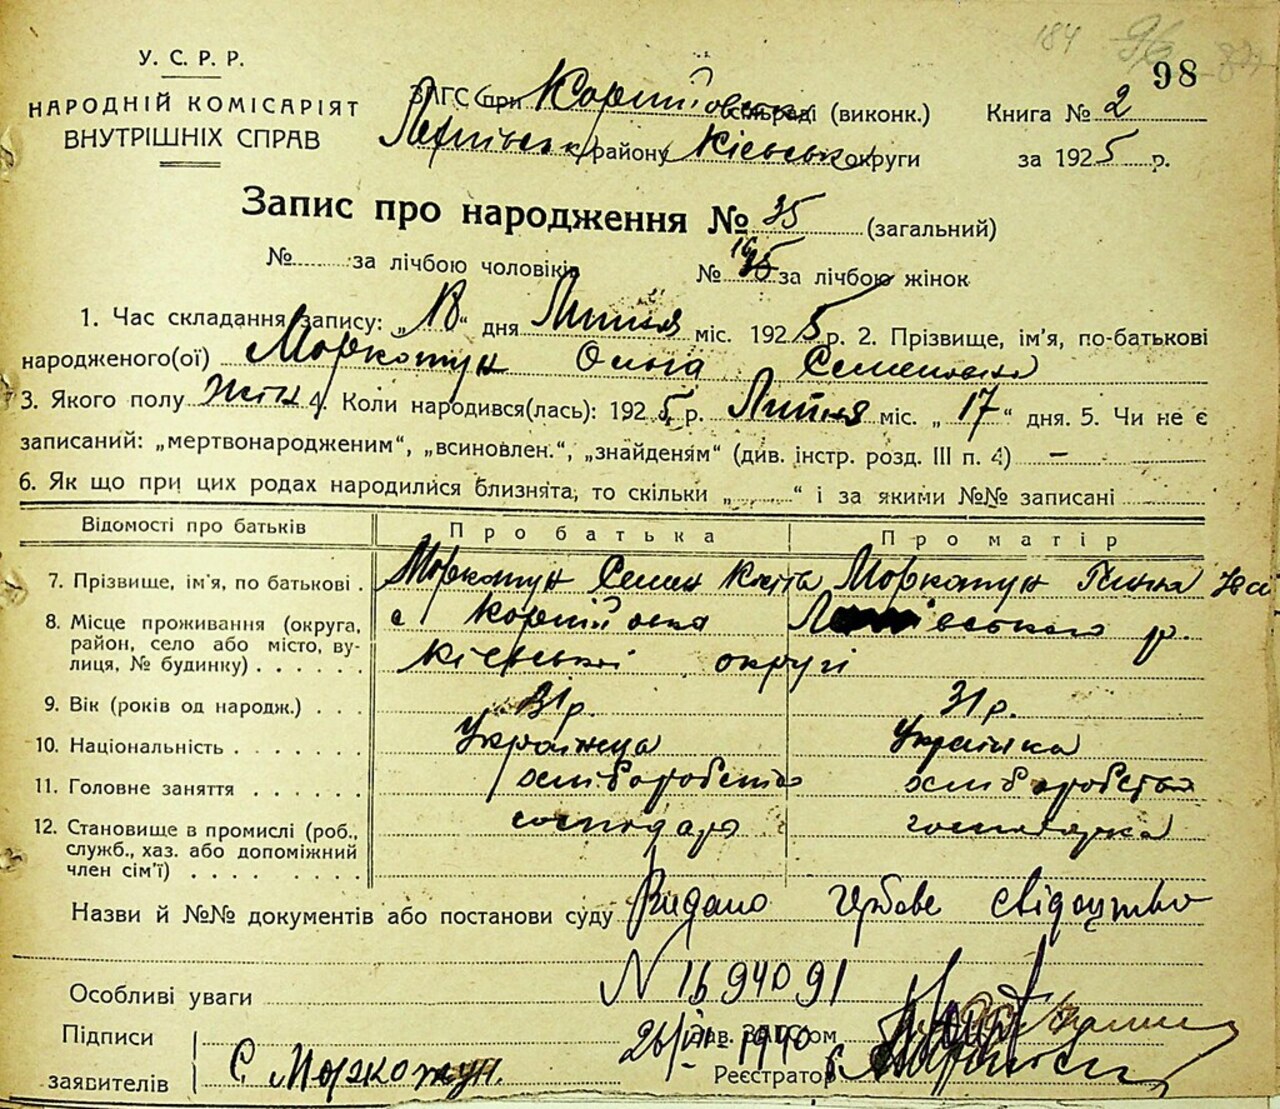 184 96
98
У. С. Р. Р.
НАРОДНІЙ КОМІСАРІЯТ
ВНУТРІШНІХ СПРАВ
ЗАГС при сільраді (виконк.)
району округи
Книга № 2
за 1925 р.
Запис про народження № 35 (загальний)
№ за лічбою чоловіків № 16 за лічбою жінок
1. Час складання запису: „18“ дня Липня міс. 1925 р. 2. Прізвище, ім'я, по-батькові
народженого(ої) Моркотун Ольга Семеновна
3. Якого полу жін 4. Коли народився(лась): 1925 р. Липня міс. „17“ дня. 5. Чи не є
записаний: „мертвонародженим“, „всиновлен.“, „знайденям“ (див. інстр. розд. III п. 4) —
6. Як що при цих родах народилися близнята, то скільки „ “ і за якими №№ записані
Відомості про батьків Про батька Про матір
7. Прізвище, ім'я, по батькові . Моркотун Семен Моркотун Ганна
8. Місце проживання (округа, район, село або місто, вулиця, № будинку) . . . . с р.
округі
9. Вік (років од народж.) . . . 31 р. 31 р.
10. Національність . . . . . . . Українець Українка
11. Головне заняття . . . . . . хліборобство хліборобство
12. Становище в промислі (роб., служб., хаз. або допоміжний член сім'ї) . . . . . . . господар господарка
Назви й №№ документів або постанови суду Видано гербове свідоцтво
N 1694091
Особливі уваги
Підписи
заявителів С. Моркотун.
26/VII 1940
Зав. ЗАГС'ом
Реєстратор